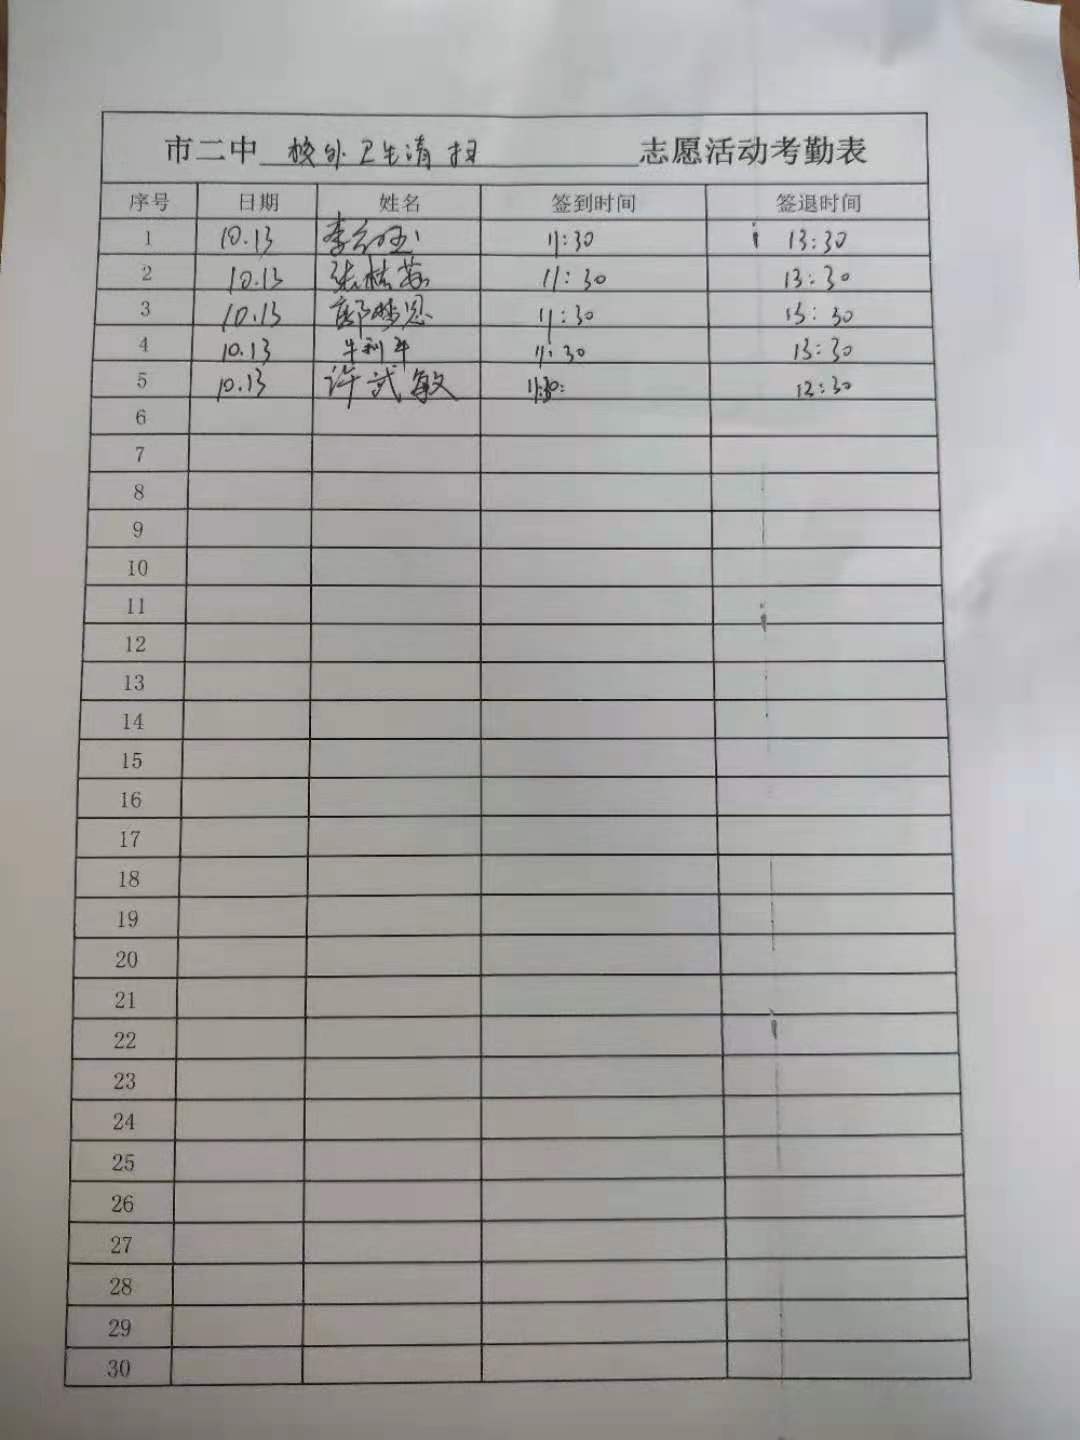 市二中 校外卫生清扫 志愿活动考勤表
序号 日期 姓名 签到时间 签退时间
1 10.13 李 11:30 13:30
2 10.13 张 11:30 13:30
3 10.13 郭梦恩 11:30 13:30
4 10.13 牛利平 11:30 13:30
5 10.13 许武敏 11:30: 13:30
6
7
8
9
10
11
12
13
14
15
16
17
18
19
20
21
22
23
24
25
26
27
28
29
30